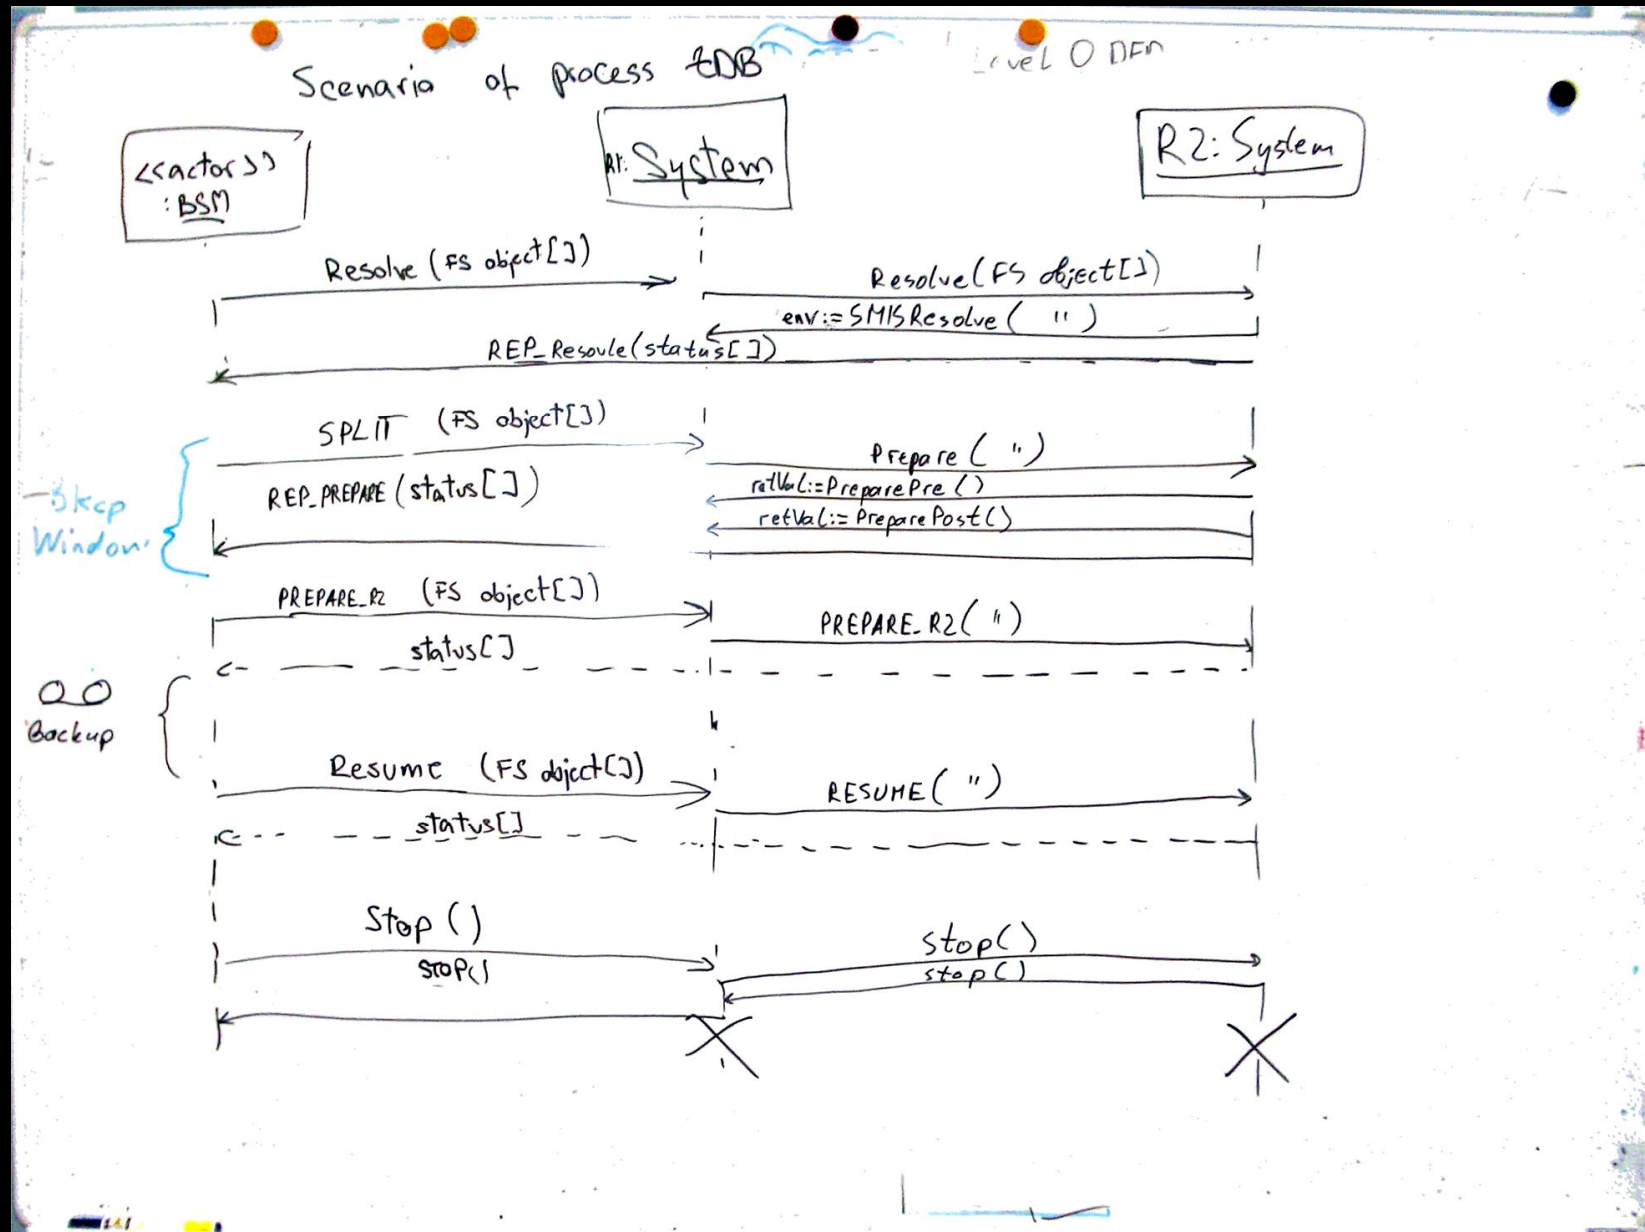 Scenario of process tDB
Level 0 DFD
<<actor>>
:BSM
R1: System
R2: System
Resolve (FS object[])
Resolve (FS object[])
env:= SMISResolve ( " )
REP_Resovle(status[])
SPLIT (FS object[])
Prepare ( " )
REP_PREPARE (status[])
retVal:=PreparePre ()
retVal:= PreparePost()
Bkcp
Window
PREPARE_R2 (FS object[])
PREPARE_R2 ( " )
status[]
Backup
Resume (FS object[])
RESUME ( " )
status[]
Stop ()
stop()
STOP()
stop()